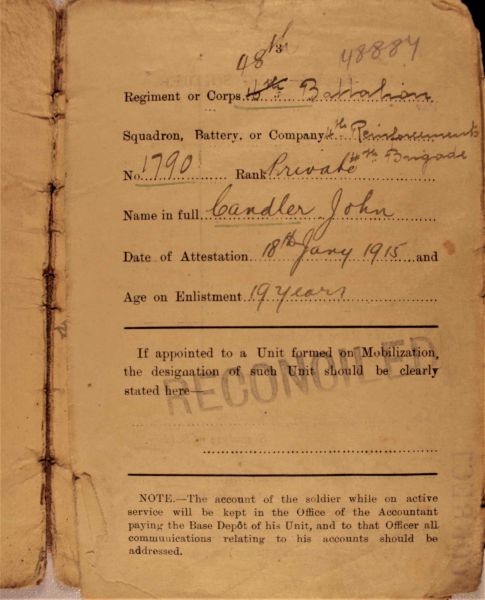 48th 13 48887
Regiment or Corps 16th Battalion
Squadron, Battery, or Company 4th Reinforcements
No. 1790 Rank Private 4th Brigade
Name in full Candler John
Date of Attestation 18th Jany 1915 and
Age on Enlistment 19 Years
If appointed to a Unit formed on Mobilization,
the designation of such Unit should be clearly
stated here—
RECONCILED
NOTE.—The account of the soldier while on active
service will be kept in the Office of the Accountant
paying the Base Depôt of his Unit, and to that Officer all
communications relating to his accounts should be
addressed.